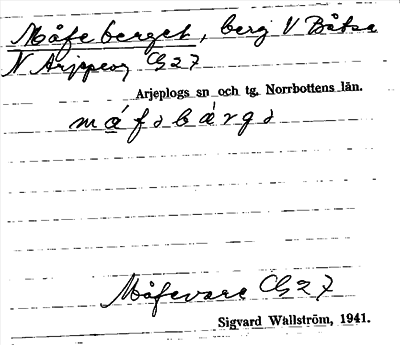 Måfeberget, berg V Båtsa
N Arjeplog Ca 27
Arjeplogs sn och tg. Norrbottens län.
måfəbärgə
Måfevare Ca 27
Sigvard Wallström, 1941.